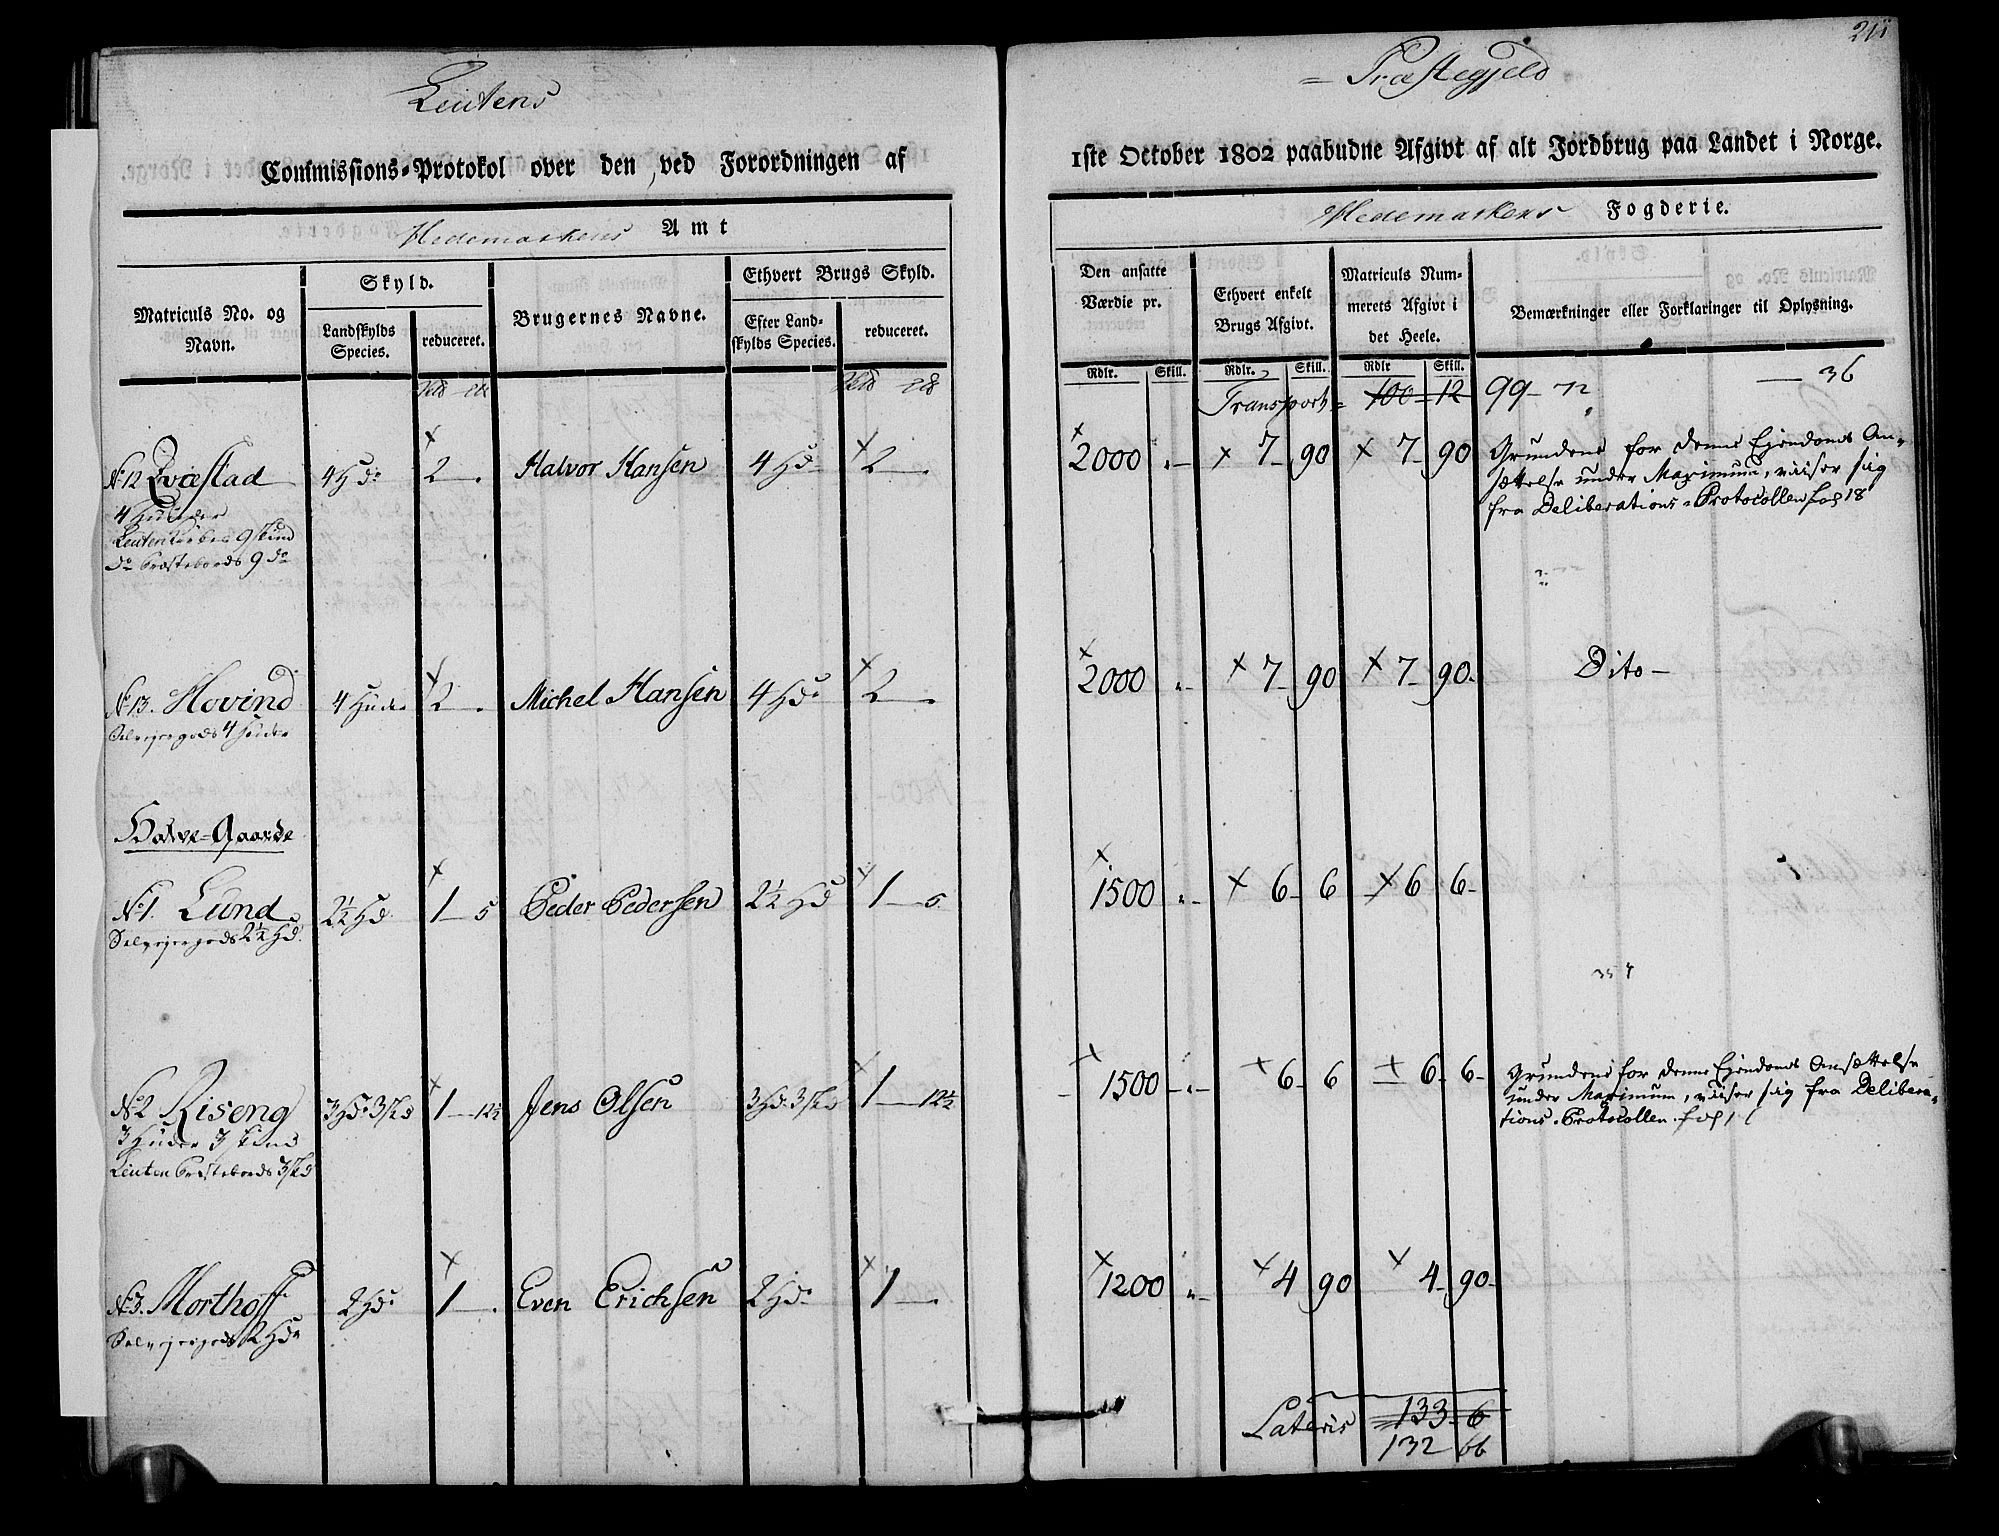 Leutens
Commissions-Protokol over den, ved Forordningen af
Hedemarkens Amt
Matriculs No. og Navn.
Skyld.
Landskylds Species.
reduceret.
Brugernes Navne.
Ethvert Brugs Skyld.
Efter Landskylds Species.
reduceret.
No 12 Qvæstad 4 Hdr 2 Halvor Hansen 4 Hdr 2
4 Huuder
9 Skind
do Præstebords 9 do
No 13. Hovind 4 Huder 2 Michel Hansen 4 Hdr 2
Selvejergods 4 Huder
Halve-Gaarde
No 1. Lund 2½ Hd. 1 5 Peder Pedersen 2½ Hd 1 5
Selvejergods 2½ Hd.
No 2 Riseng 3 Hdr 3 Skd 1 12½ Jens Olsen 3 Hdr 3 Skd 1 12½
3 Huder 3 Skind
Leuten Præstebords 3 Skd
No 3. Morthoff 2 Hdr 1 Even Erichsen 2 Hdr 1
Selvejergods 2 Hdr
= Præstegjeld
1ste October 1802 paabudne Afgivt af alt Jordbrug paa Landet i Norge.
Hedemarkens Fogderie.
Den ansatte Værdie pr.
Ethvert enkelt Brugs Afgivt.
Matriculs Nummerets Afgivt i det Heele.
Bemærkninger eller Forklaringer til Oplysning.
Rdlr. Skill. Rdlr. Skill. Rdlr Skill.
Transport = 100 12 99 72 — 36
2000 7 90 7 90 Grundene for denne Ejendoms An-
sættelse under Maximum, viiser sig
fra Deliberations-Protocollen fol 18
2000 7 90 7 90 Dito
1500 6 6 6 6
1500 6 6 6 6 Grundene for denne Ejendoms Ansættelse
under Maximum, viiser sig fra Delibera-
tions-Protocollen fol
1200 4 90 4 90
Lateris 133 6
132 66